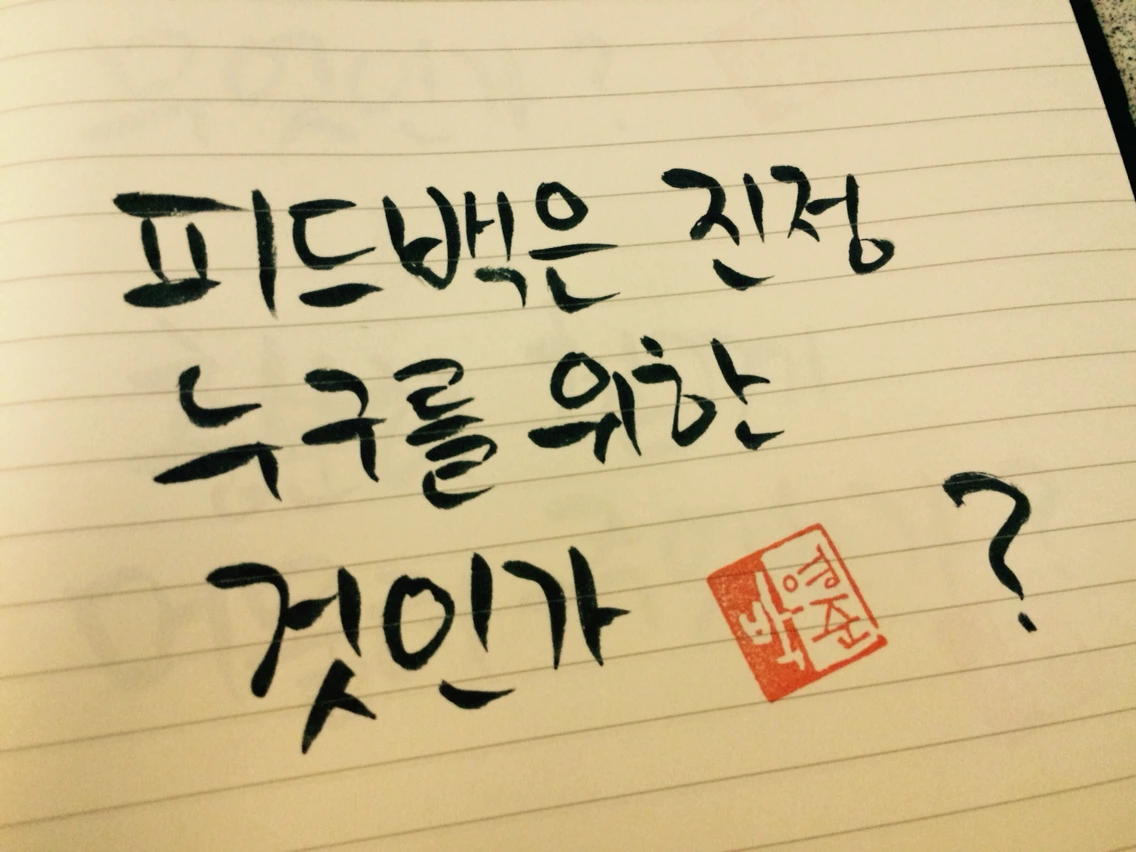 피드백은 진정
누구를 위한
것인가 ?